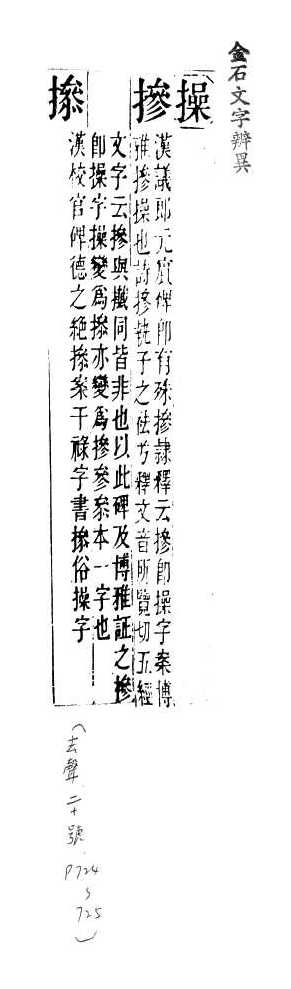 金石文字辨異
操
摻
漢議郎元賓碑郎有殊摻隸釋云摻即操字案博
雅摻操也詩摻執子之袪兮釋文音所覽切五經
文字云摻與攕同皆非也以此碑及博雅証之摻
即操字操變爲摻亦變爲摻參叅本一字也
㨿
漢校官碑德之絶摻案干祿字書摻俗操字
(去聲.二十號.
P724
〜
725)